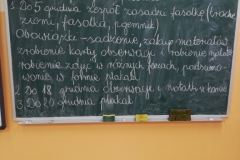 1 Do 5 grudnia zespół zasadzi fasolkę (trochę
ziemi, fasolka, pojemnik)
Obowiązki - sadzenie, zakup materiałów
zrobienie karty obserwacji, robienie notatek
zrobienie zdjęć w różnych fazach, podsumo-
wanie w formie plakatu
2 Do 18 grudnia obserwacje i notatki w karcie
3, Do 20 grudnia plakat